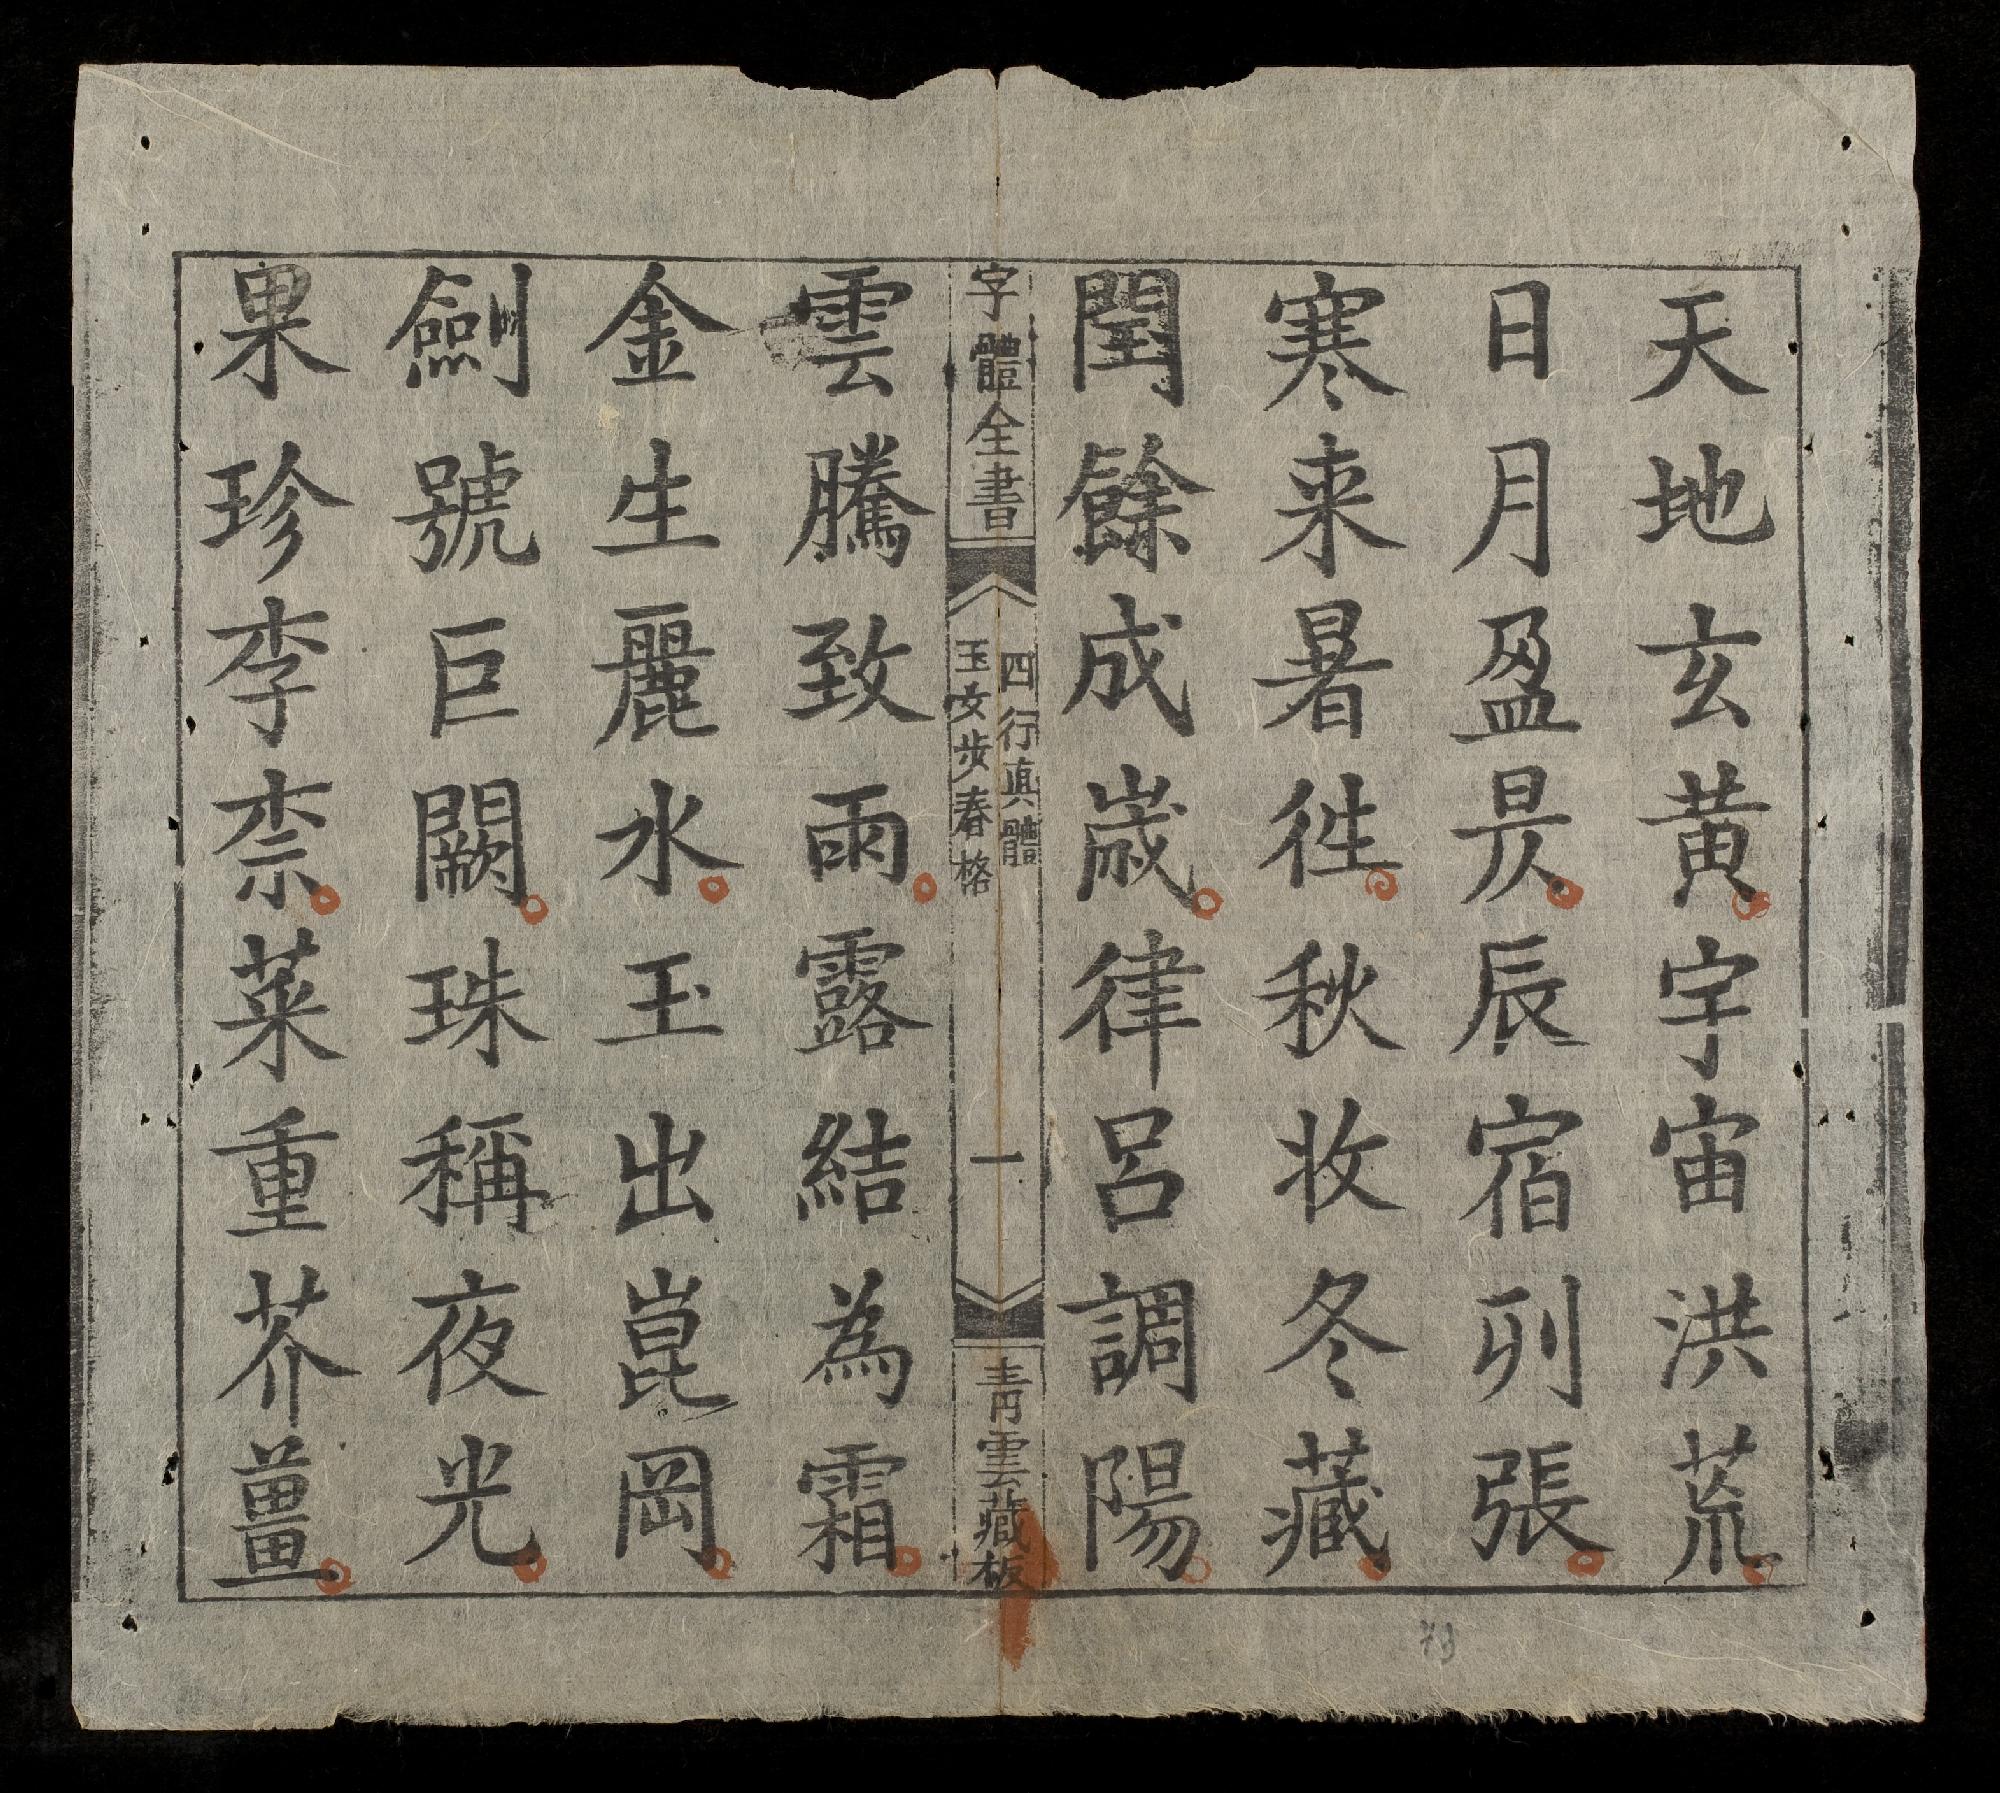 天地玄黄宇宙洪荒
日月盈昃辰宿列張
寒来暑徃秋收冬藏
閏餘成嵗律吕調陽
字體全書
四行真體
玉女步春格
一
青雲藏板
雲騰致雨露結為霜
金生麗水玉出崑岡
劍號巨闕珠稱夜光
果珍李柰菜重芥薑
73